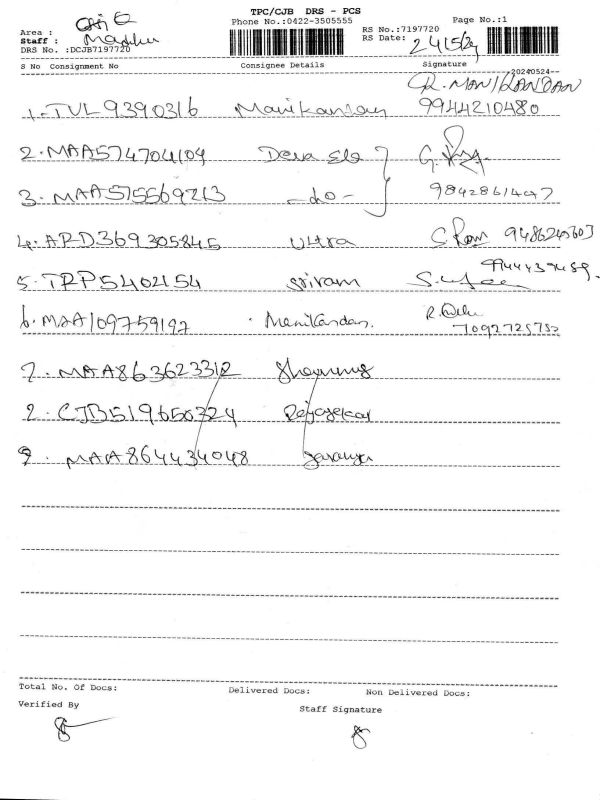 TPC/CJB DRS - PCS
Phone No.:0422-3505555 Page No.:1
Area :
Staff : Madhu
DRS No. :DCJB7197720
RS No.:7197720
RS Date: 24/5/24
S No Consignment No Consignee Details Signature
20240524--
R. MANIKANDAN
1. TVL9390316 Manikandan 9944210480
2. MAA574704109 Deva Ele
3. MAA515569213 -do-
4. ARD369305845 Ultra S. Ram
5. TRP5402154 Sriram
6. MAA109759197 Manikandan.
7092725752
7. MAA863623312
2. CJB519650324
9. MAA864434048 Saranya
Total No. Of Docs: Delivered Docs: Non Delivered Docs:
Verified By Staff Signature